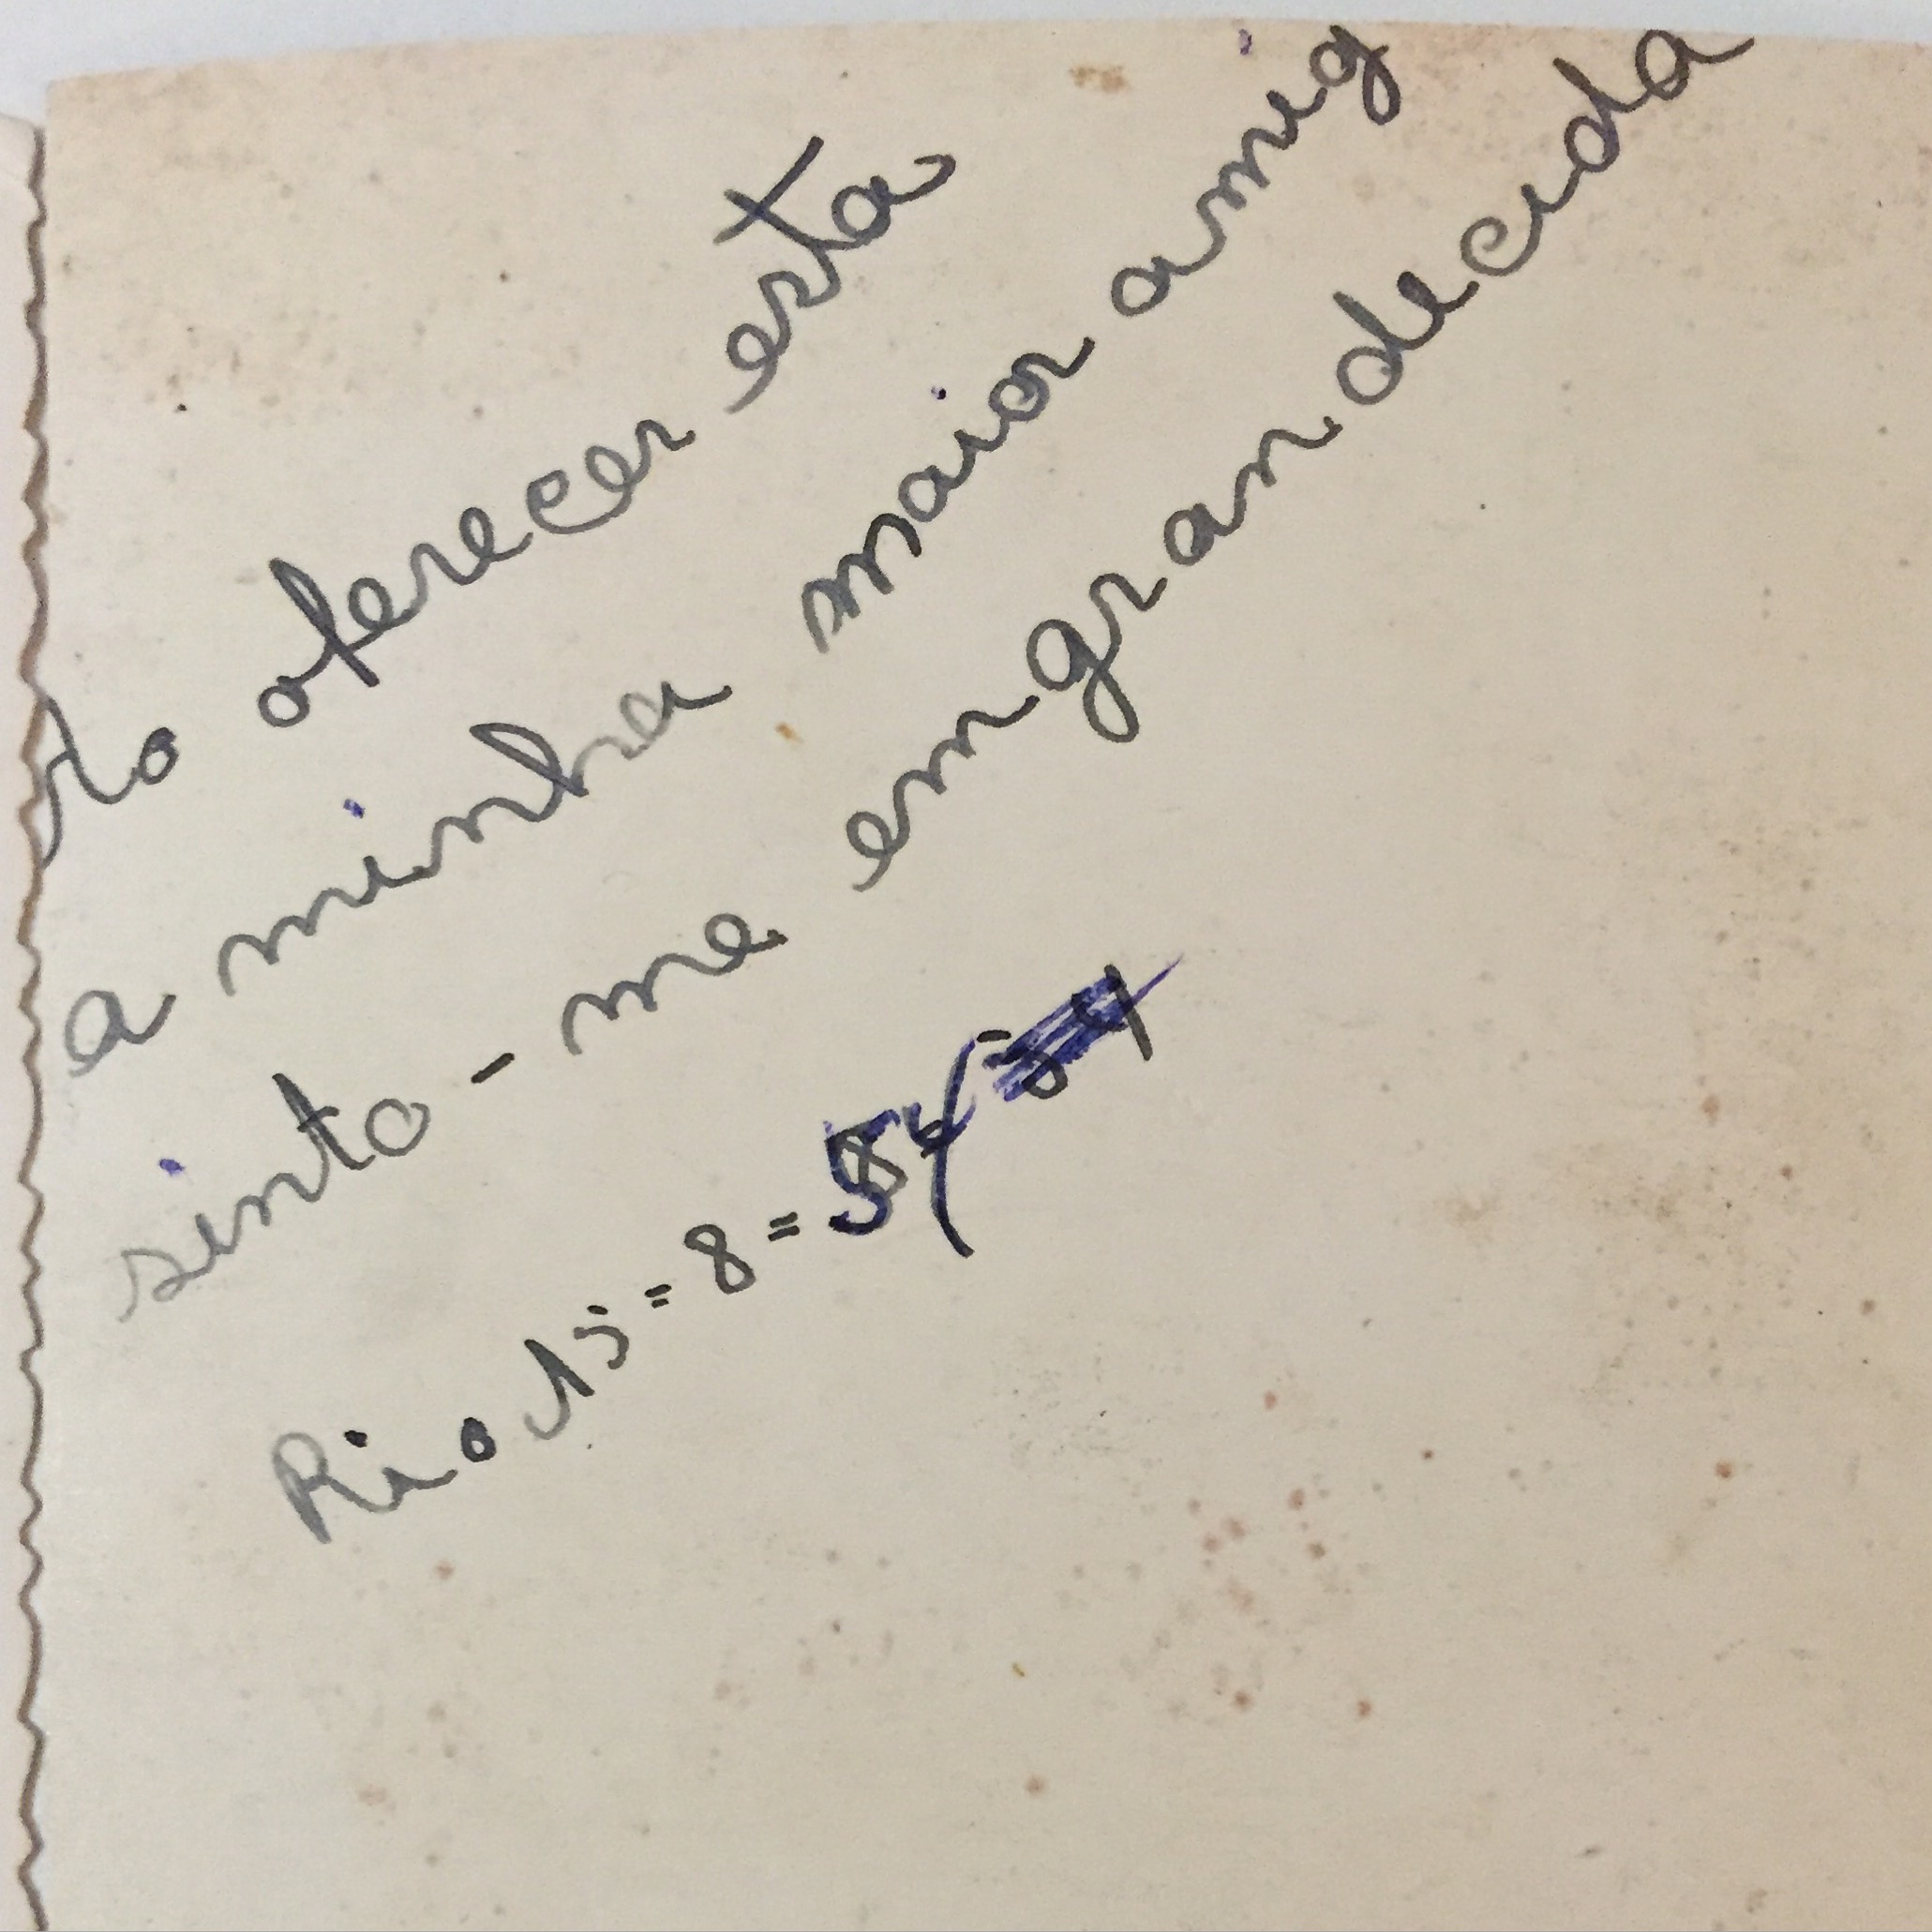 Ao oferecer esta
a minha maior amig
sinto-me engrandecida
Rio 15=8=54